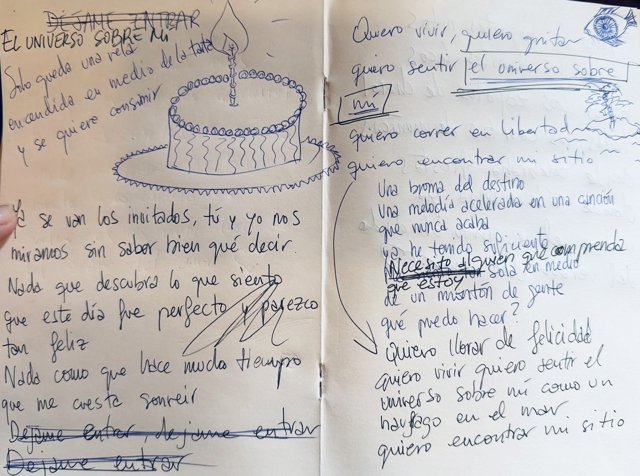 DÉJAME ENTRAR
EL UNIVERSO SOBRE MÍ
Solo queda una vela
encendida en medio de la tarta
y se quiere consumir
Ya se van los invitados, tú y yo nos
miramos sin saber bien qué decir.
Nada que descubra lo que siento
que este día fue perfecto y parezco
tan feliz
Nada como que hace mucho tiempo
que me cuesta sonreír
Dejame entrar, dejame entrar
Dejame entrar
Quiero vivir, quiero gritar
quiero sentir el universo sobre
mí
quiero correr en libertad
quiero encontrar mi sitio
Una broma del destino
Una melodía acelerada en una canción
que nunca acaba
ya he tenido suficiente
Necesito alguien que comprenda
que estoy sola en medio
de un montón de gente
qué puedo hacer?
Quiero llorar de felicidad
quiero vivir quiero sentir el
universo sobre mí como un
naufrago en el mar
quiero encontrar mi sitio